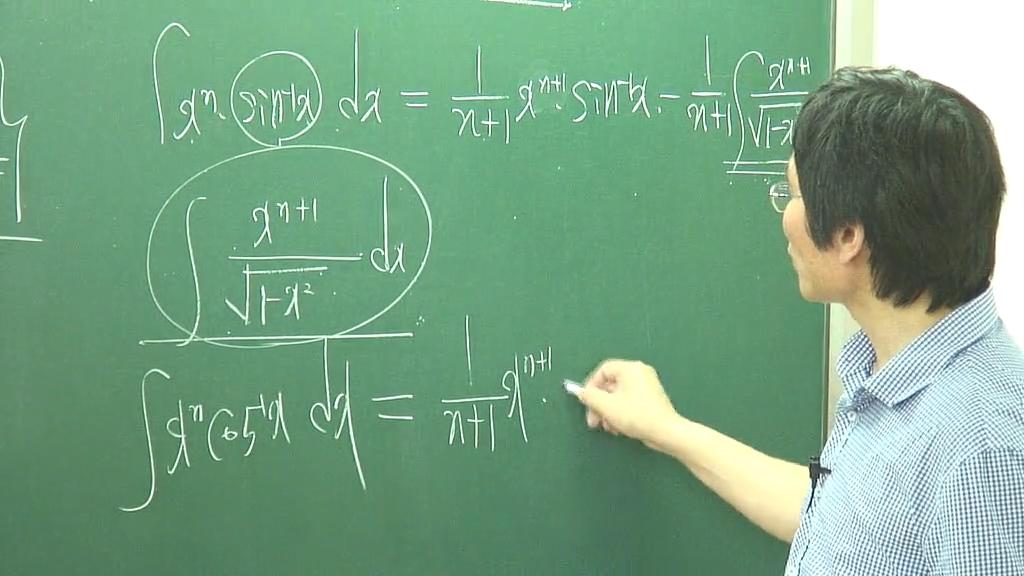 ∫ xⁿ · sin⁻¹x dx = 1/(n+1) xⁿ⁺¹ · sin⁻¹x · − 1/(n+1) ∫ xⁿ⁺¹/√(1−x
∫ xⁿ⁺¹/√(1−x²) dx
∫ xⁿ cos⁻¹x dx = 1/(n+1) xⁿ⁺¹ ·